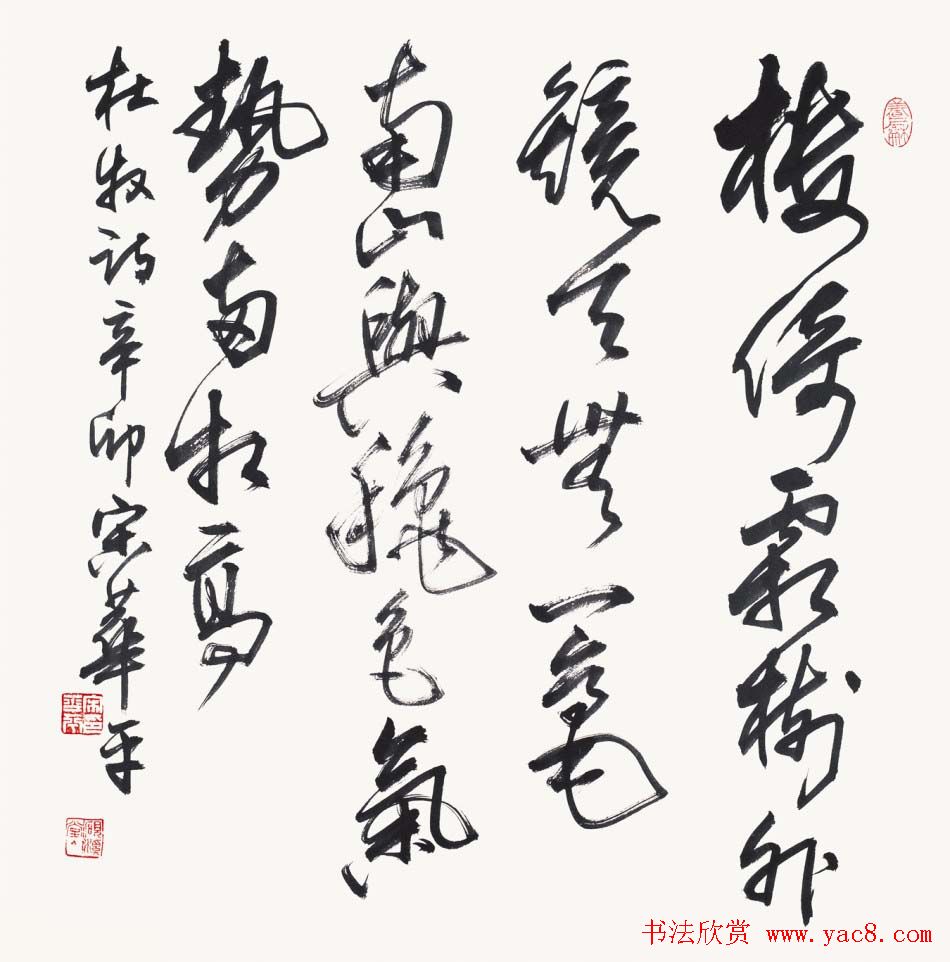 樓倚霜樹外
鏡天無一毫
南山與穐色氣
勢兩相高
杜牧詩辛卯宋華平
书法欣赏 www.yac8.com